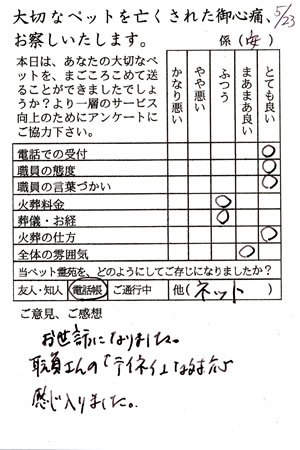 大切なペットを亡くされた御心痛、 5/23
お察しいたします。 係(安)
本日は、あなたの大切なペッ
トを、まごころこめて送
ることができましたでし
ょうか?より一層のサービス
向上のためにアンケートに
ご協力下さい。
かなり悪い
やや悪い
ふつう
まあまあ良い
とても良い
電話での受付 ○
職員の態度 ○
職員の言葉づかい ○
火葬料金 ○
葬儀・お経 ○
火葬の仕方 ○
全体の雰囲気 ○
当ペット霊苑を、どのようにしてご存じになりましたか?
友人・知人 電話帳 ご通行中 他(ネット)
ご意見、ご感想
お世話になりました。
職員さんの「テイネイ」な対応
感じ入りました。